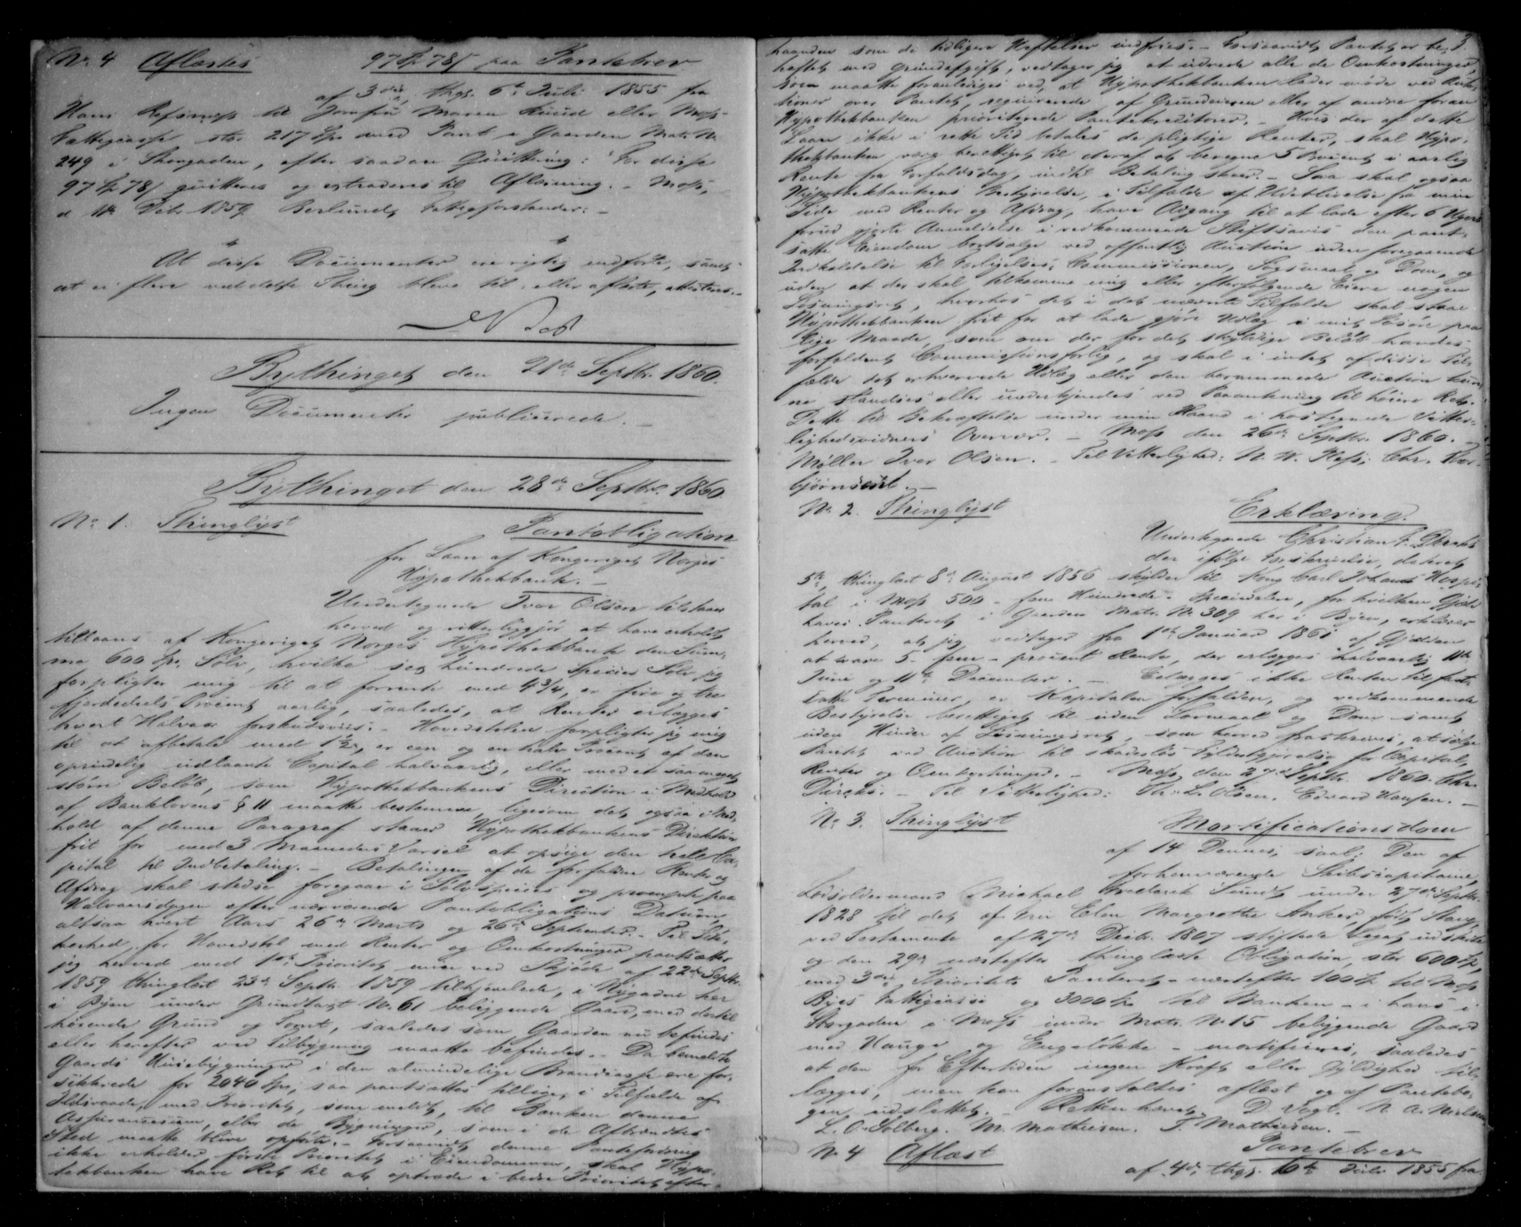 No. 4 Aflæstes 97 Sp. 78 ß paa Pantebrev
af 3die, thgl. 6te Juli 1855 fra
Hans Refsnæss til Jomfru Maren Huud eller Moss
Fattigcasse stor 217 Sp. med Pant i Gaarden Matr. No.
249 i Storgaden, efter saadan Qvittering: For disse
97 Sp. 78 ß qvitteres og extraderes til Aflæsning. - Moss,
d. 11te Febr. 1859. Berlund, Fattigforstander. -
At disse Documenter ere rigtig indførte, samt
at ei flere ved dette Thing bleve til- eller aflæste, attesteres. -
Bythinget den 21de Septbr. 1860.
Ingen Documenter publicerede. -
Bythinget den 28de Septbr. 1860
No. 1. Thinglyst Pantobligation
for Laan af Kongeriget Norges
Hypothekbank. -
Undertegnede Ivar Olsen tilstaaer
herved og vitterliggjør at have erholdt
tillaans af Kongeriget Norges Hypothekbank den Sum-
ma 600 Sp. Sølv, hvilke sex hundrede Species Sølv jeg
forpligter mig til at forrente med 4 3/4, er fire og tre
fjerdedeels Procent aarlig, saaledes, at Renten erlægges
hvert Halvaar forskudsviis. - Hovedstolen forpligter jeg mig
til at afbetale med 1 1/2, er een og en halv Procent af den
oprindelig udlaante Capital halvaarlig, eller med et saa meget
større Beløb, som Hypothekbankens Direction i Medhold
af Banklovens § 11 maatte bestemme, ligesom det ogsaa i Med-
hold af denne Paragraf staaer Hypothekbankens Direktion
frit for med 3 Maaneders Varsel at opsige den hele Ca-
pital til Indbetaling. - Betalingen af de forfaldne Renter og
Afdrag skal stedse foregaae i Sølvspecies og prompte paa
Halvaarsdagen efter nærværende Pantobligations Datum,
altsaa hvert Aars 26de Marts og 26de September. - Til Sik-
kerhed for Hovedstol med Renter og Omkostninger pantsætter
jeg herved med 1ste Prioritet min ved Skjøde af 22de Septbr.
1859, thinglæst 23de Septbr. 1859 tilhjemlede, i Nygaden her
i Byen under Grundtaxt No. 61 beliggende Gaard, med dertil
hørende Grund og Tomt, saaledes som Gaarden nu befindes
eller herefter ved Tilbygning maatte befindes. - Da bemeldte
Gaards Huusebygninger i den almindelige Brandcasse ere for-
sikkrede for 2040 Sp., saa pantsættes tillige, i Tilfælde af
Ildsvaade, med Prioritet, som meldt, til Banken denne
Assurancesum, eller de Bygninger, som i de Afbrændtes
Sted maatte blive opførte. - Forsaavidt denne Panteforskrivning
ikke erholder første Prioritet i Eiendommen, skal Hypo-
thekbanken have Ret til at optræde i bedre Prioritet efter-
haanden som de tidligere Heftelser indfries. - Forsaavidt Pantet er be-
heftet med Grundafgift, vedtager jeg at udrede alle de Omkostninger,
som maatte foranlediges ved, at Hypothekbanken lader møde ved Auk-
tioner over Pantet, requirerede af Grundeieren eller af andre foran
Hypothekbanken prioriterede Pantekreditorer. - Hvis der af dette
Laan ikke i rette Tid betales de pligtige Renter, skal Hypo-
thekbanken være berettiget til deraf at beregne 5 Procent i aarlig
Rente fra Forfaldsdag, indtil Betaling skeer. - Saa skal ogsaa
Hypothekbankens Bestyrelse, i Tilfælde af Udeblivelse fra min
Side med Renter og Afdrag, have Adgang til at lade efter 6 Ugers
forud gjorte Anmeldelse i vedkommende Stiftsavis den pant-
satte Eiendom bortsælge ved offentlig Auction uden foregaaende
Indkaldelse til Forligelses-Commissionen, Søgsmaal og Dom, og
uden at der skal tilkomme mig eller efterfølgende Eiere nogen
Løsningsret, hvorhos det i det nævnte Tilfælde skal staae
Hypothekbanken frit for at lade gjøre Udlæg i mit Løsøre paa
lige Maade, som om der for det skyldige Beløb handes
forfaldent Commissionsforlig, og skal i intet af disse Til-
fælde det erhvervede Udlæg eller den berammede Auction kun-
ne standses eller underkjendes ved Paaankning til høiere Ret.
Dette til Bekræftelse under min Haand i hostegnede Vitter-
lighedsvidners Overvær. - Moss den 26de Septbr. 1860. -
Møller Ivar Olsen. - Til Vitterlighed: Chr. Tor-
bjørnsen. -
No. 2. Thinglyst Erklæring.
Undertegnede Christian F. Dircks
der ifølge Forskrivelse, dateret
5te, thinglæst 8de August 1856 skylder til Kong Carl Johans Hospi-
tal i Moss 500 - fem Hundrede - Speciedaler, for hvilken Gjæld
haves Panteret i Gaarden Matr. No. 309 her i Byen, erklærer
herved, at jeg vedtager fra 1ste Januar 1861 af Gjælden
at svare 5 - fem - procent Rente, der erlægges halvaarlig 11te
Juni og 11te December. - Erlægges ikke Renten til fast-
satte Terminer, er Kapitalen forfalden, og vedkommende
Bestyrelse berettiget til uden Lovmaal og Dom samt
uden Hinder af Løsningsret, som herved fraskrives, at sælge
Pantet ved Auction til skadesløs Fyldestgjørelse for Capital,
Renter og Omkostninger. - Moss den 27de Septbr. 1860. Chr.
Dircks. - Til Vitterlighed: Th. L. Olsen. Edvard Hansen. -
No. 3. Thinglyst Mortificationsdom
af 14 Dennes, saal.: Den af
forhenværende Skibscapitaine,
Lodsoldermand Michael Frederik Sundt under 27de Septbr.
1828 til det af Fru Elen Margrethe Anker født Stang
ved Testamente af 27de Decbr. 1807 stiftede Legat udstedte
og den 29de næstefter thinglæste Obligation, stor 600 Sp.,
med 3die Prioritets Panteret - næstefter 100 Sp. til Moss
Byes Fattigcasse og 3000 Sp. til Banken - i hans i
Storgaden i Moss under Matr. No. 15 beliggende Gaard
med Hauge og Engeløkke - mortificeres, saaledes
at den for Eftertiden ingen Kraft eller Gyldighed til-
lægges, men kan foranstaltes aflæst og af Pantebo-
gen udslettet. - Retten hævet. D. Vogt. N. A. Nielsen
L. O. Solberg. M. Mathiesen. T. Mathiesen. -
No. 4 Aflæst Pantebrev
af 4de, thgl. 6te Juli 1855 fra